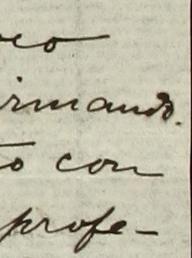 co
irmando.
to con
profe-